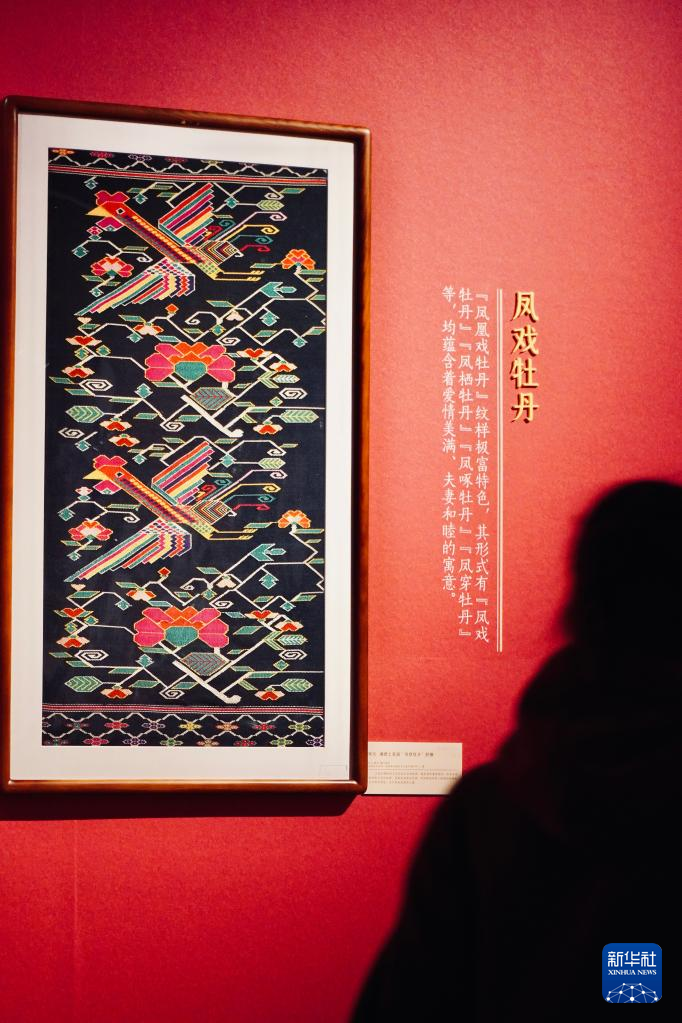 凤戏牡丹
『凤凰戏牡丹』纹样极富特色，其形式有『凤戏
牡丹』『凤栖牡丹』『凤啄牡丹』『凤穿牡丹』
等，均蕴含着爱情美满、夫妻和睦的寓意。
新华社
XINHUA NEWS